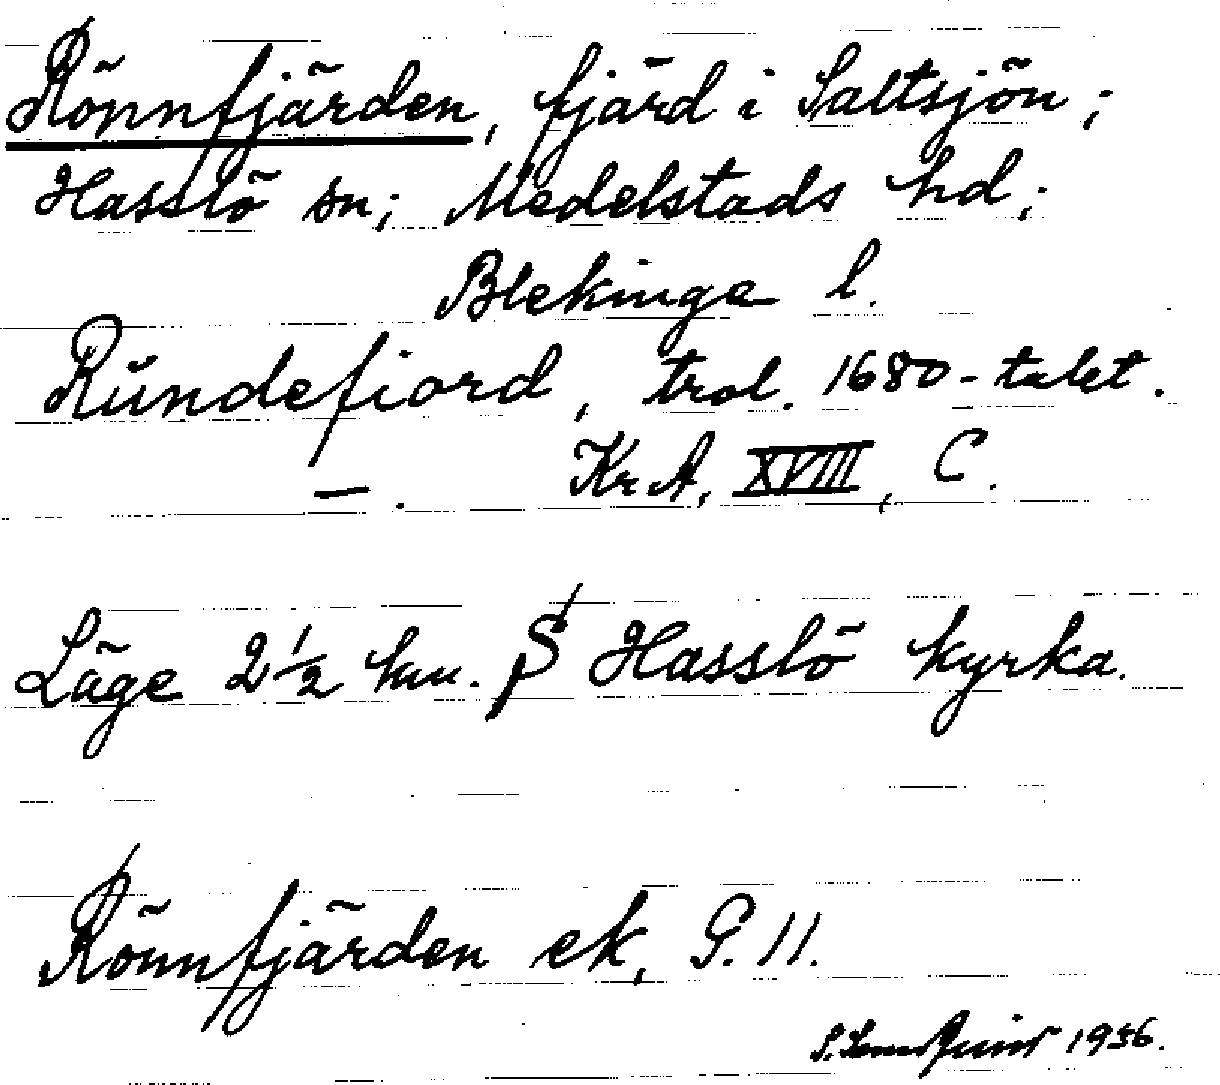 Rönnfjärden, fjärd i Saltsjön;
Hasslö sn; Medelstads hd;
Blekinge l.
Rŭndefiord, trol. 1680-talet.
— . KrA, XVIII, C.
Läge 2 1/2 km. S Hasslö kyrka.
Rönnfjärden ek, G. 11.
1936.